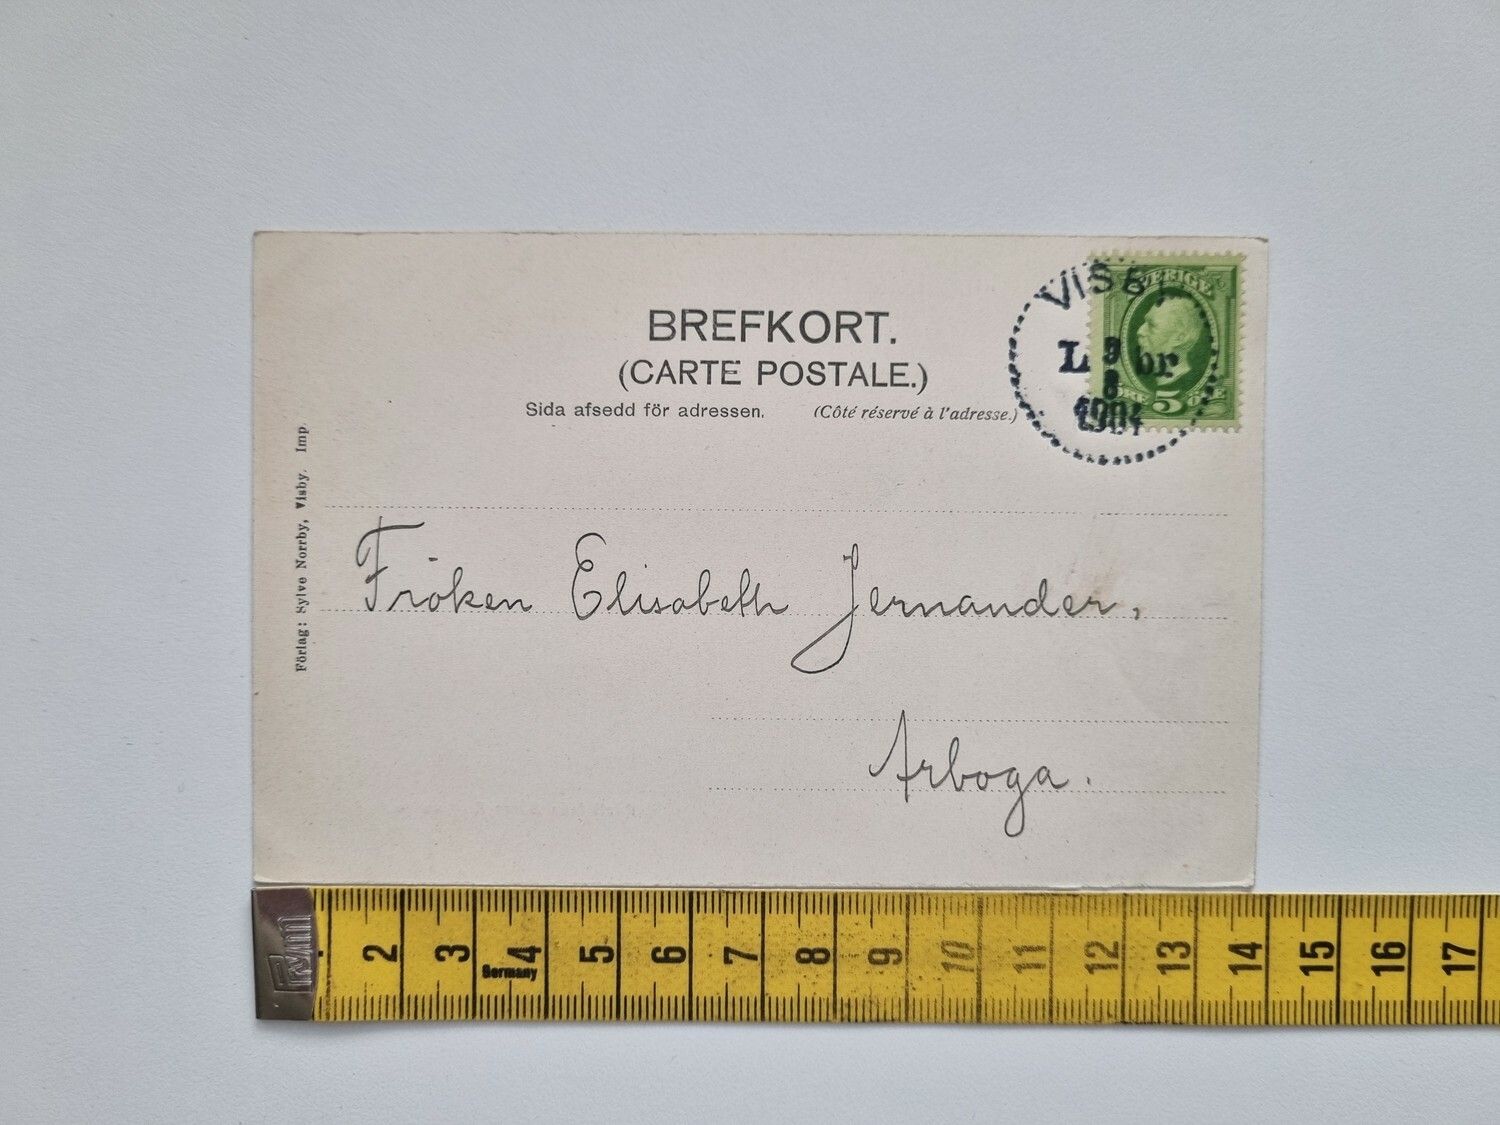 BREFKORT.
(CARTE POSTALE.)
Sida afsedd för adressen. (Côté réservé à l'adresse.)
VISBY
SVERIGE
L br
9
8
1904
5
ÖRE ÖRE
Förlag: Sylve Norrby, Visby. Imp.
Fröken Elisabeth Jernander,
Arboga.
2 3 4 5 6 7 8 9 10 11 12 13 14 15 16 17
Germany